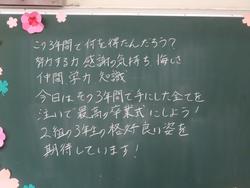 この3年間で何を得たんだろう？
努力する力 感謝の気持ち 悔しさ
仲間 学力 知識
今日はその3年間で手にした全てを
注いで"最高の卒業式"にしよう！
2組の3年生の格好良い姿を
期待しています！